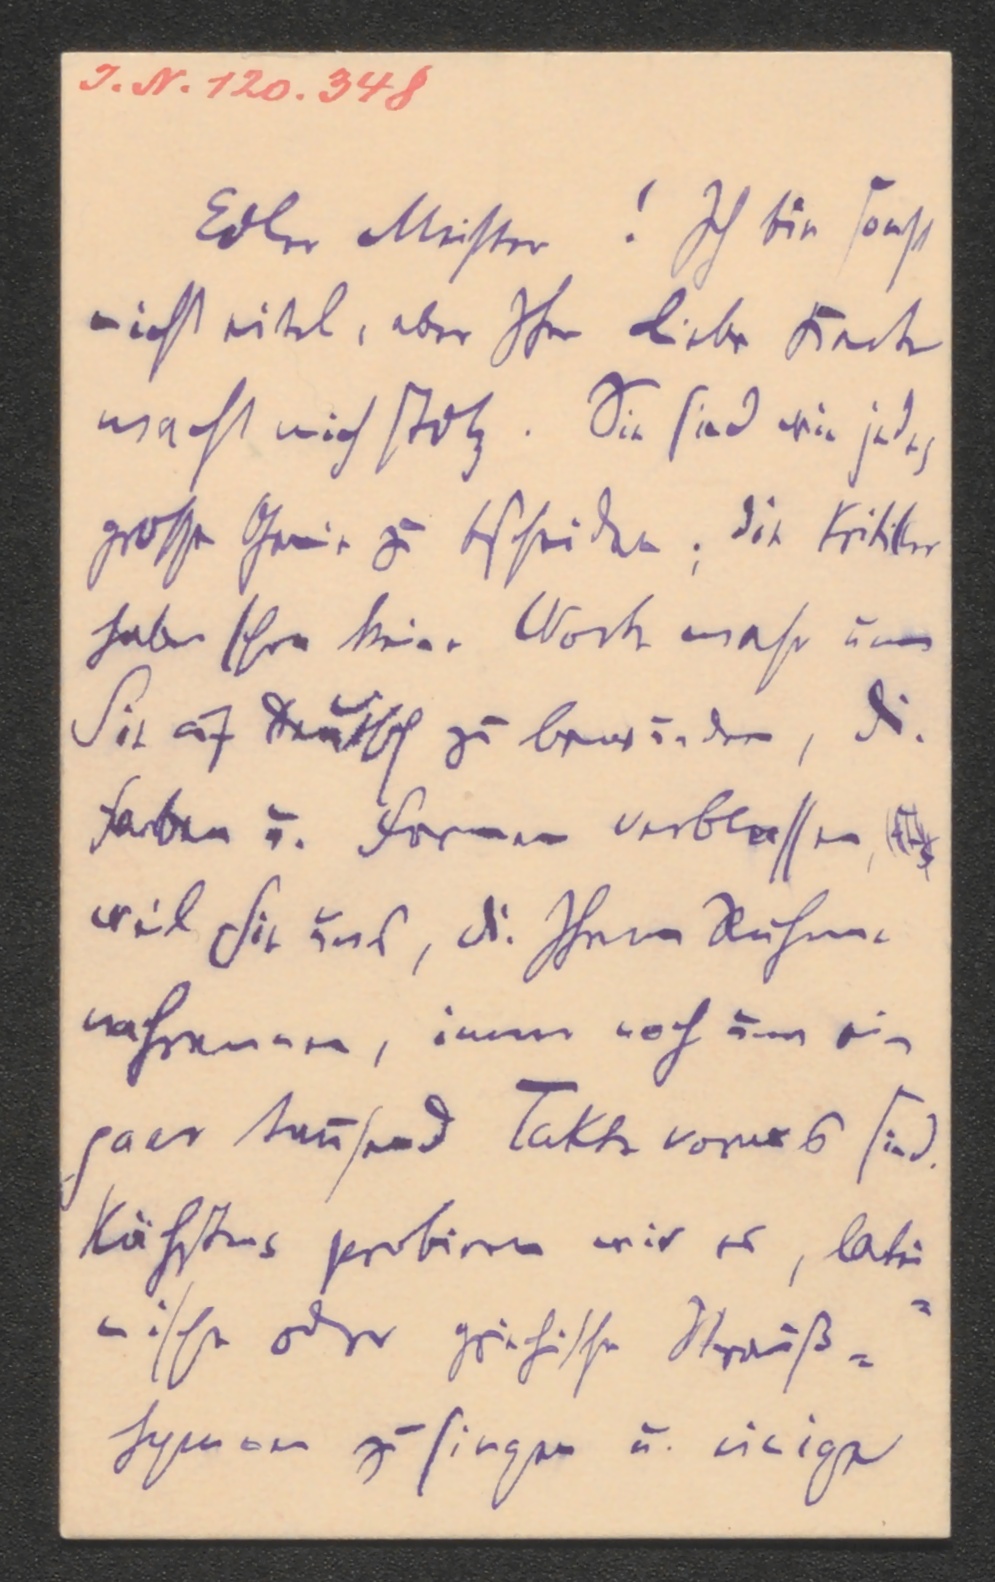 I. N. 120.348
Edler Meister! Ich bin sonst
nicht eitel, aber Ihre liebe Karte
macht mich stolz. Sie sind wie jedes
große Genie zu bescheiden; die Kritiker
haben schon keine Worte mehr um
Sie auf Deutsch zu bewundern, die
Farben u. Formen verblassen,
weil Sie uns, die Ihrem Ruhme
nachrennen, immer noch um ein
paar tausend Takte voraus sind.
Nächstens probiren wir es, latei
nische oder griechische Strauß-
hymnen zu singen u. einige